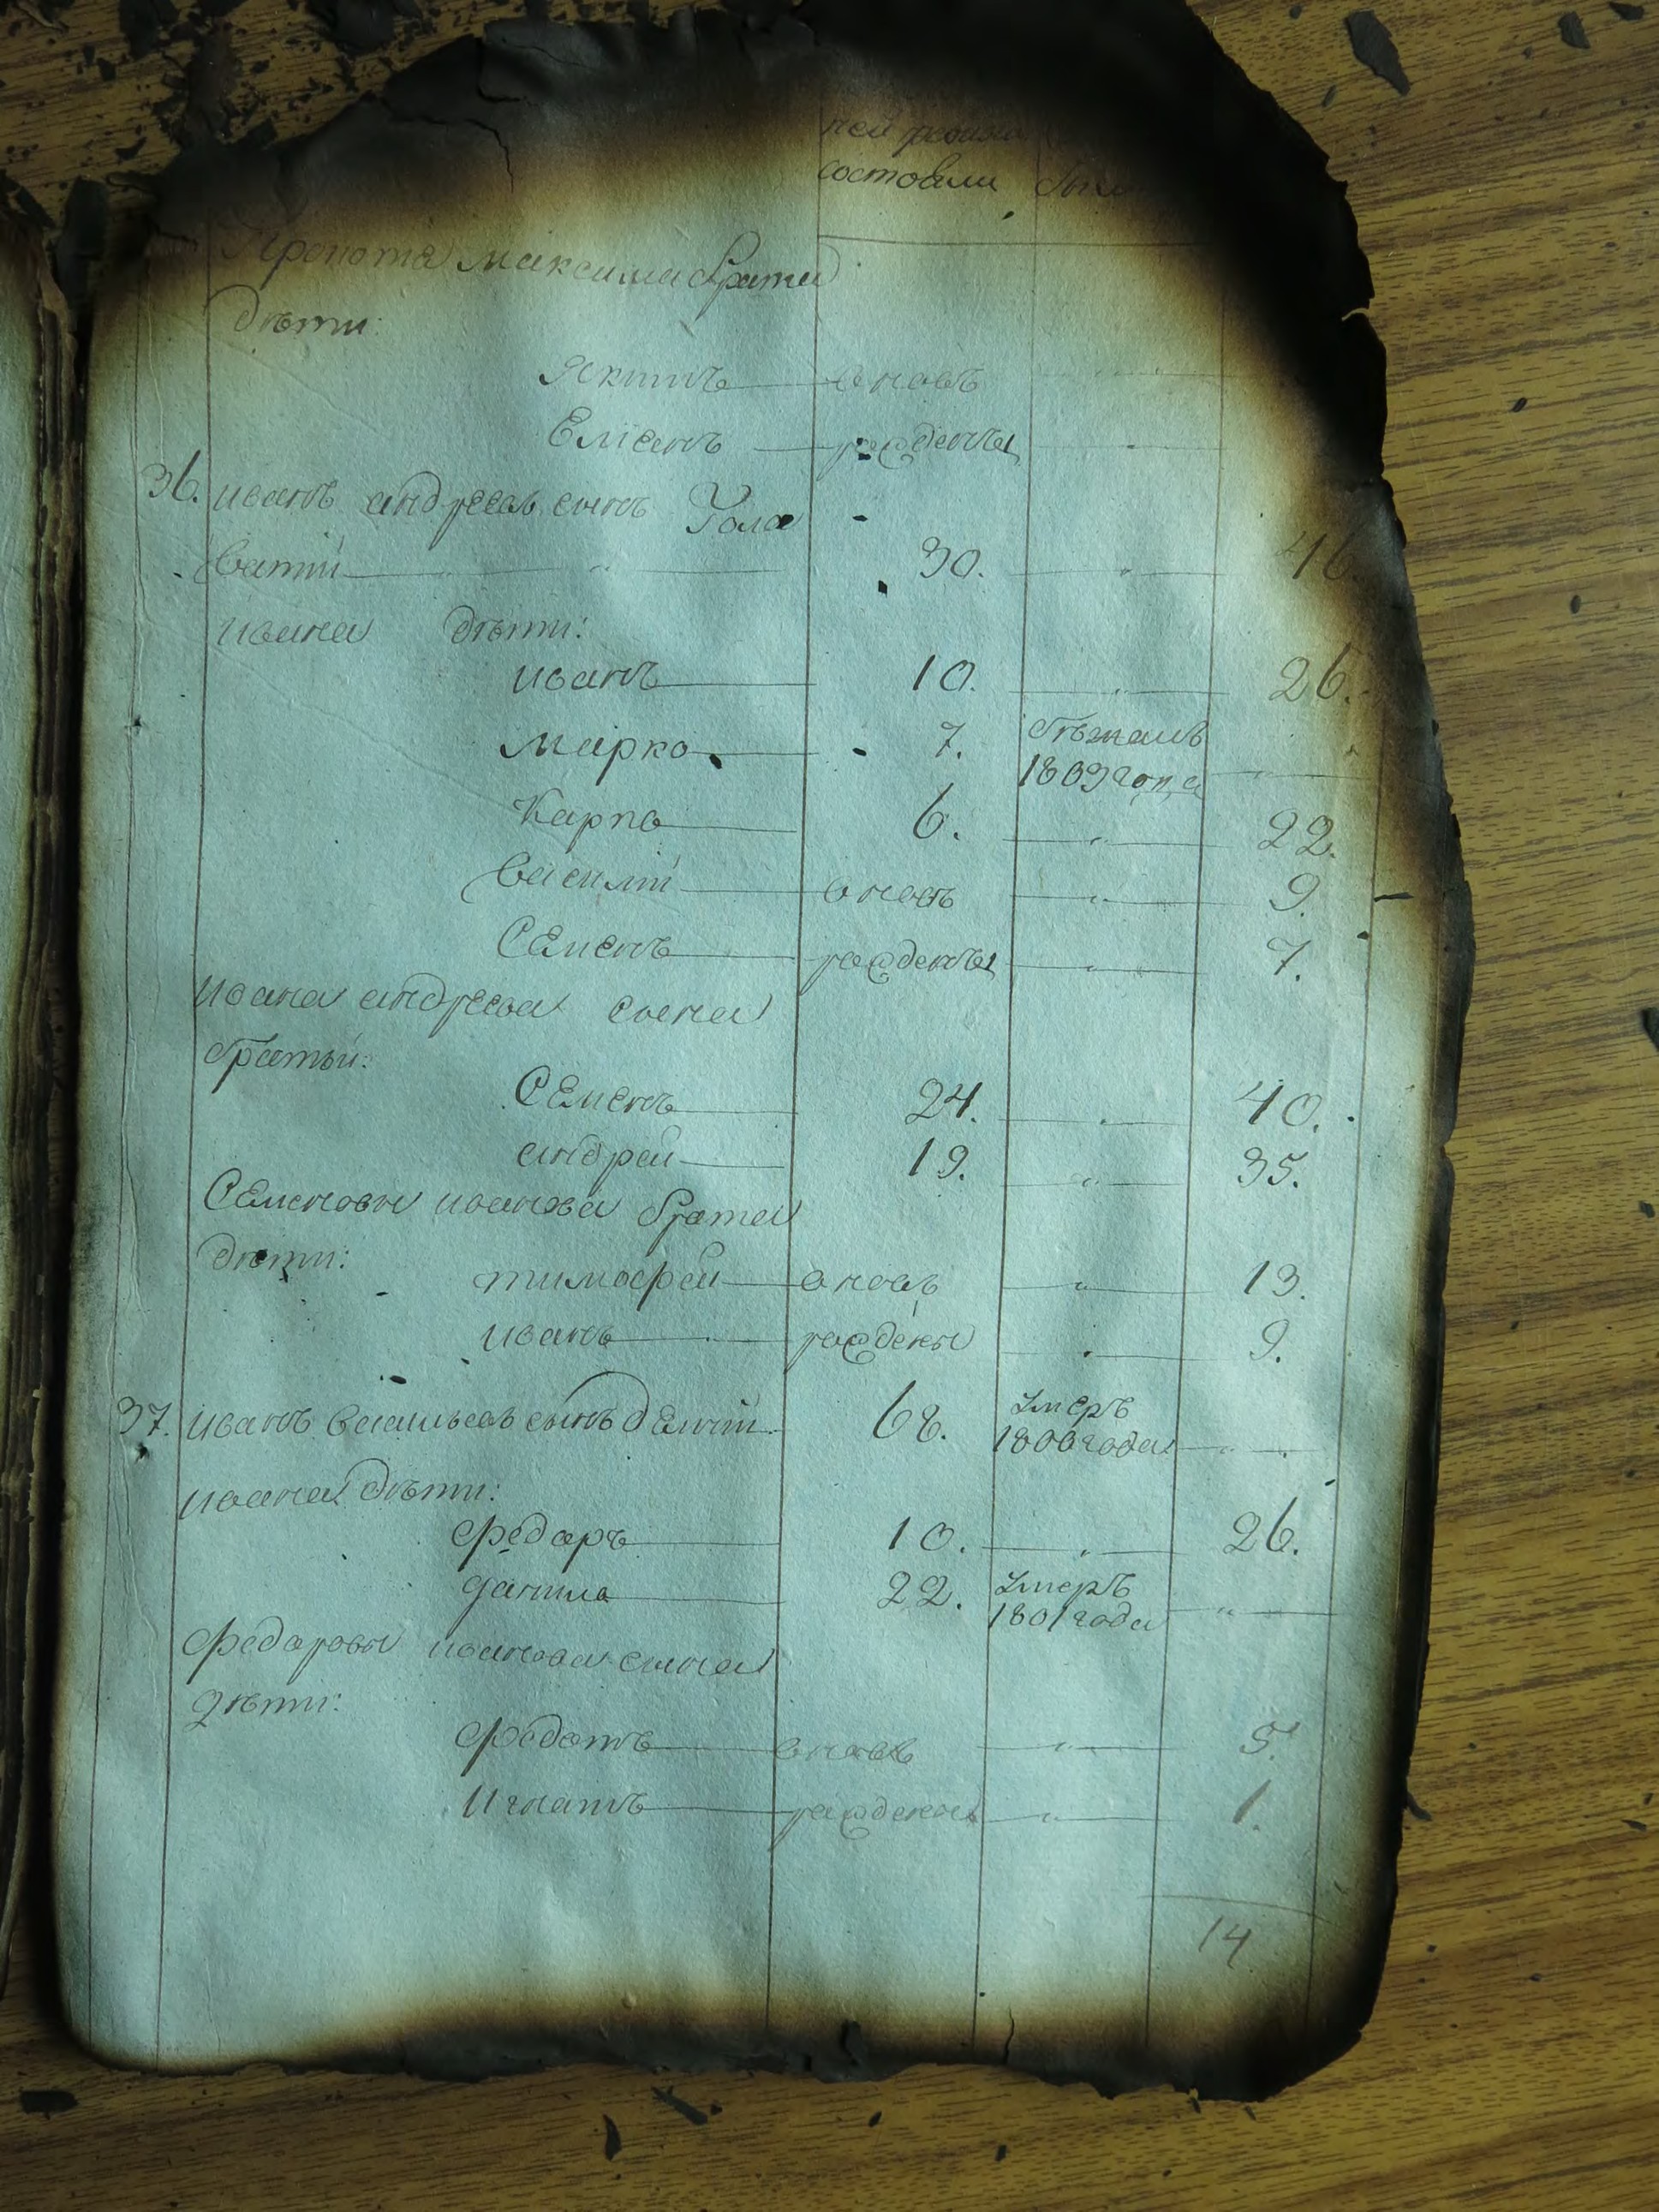 состояли
Максима брата
дѣти:
вновь
Елисей рождены
36. Иванъ Андреевъ сынъ Голо
ватїй 30. 46.
Ивана дѣти:
Иванъ 10. 26.
Марко 7. бѣжалъ
1809 года
Карпо 6. 22.
Василїй вновь 9.
Семенъ рождены 7.
Ивана Андреева сына
братьи:
Семенъ 24. 40.
Андрей 19. 35.
Семеновы Иванова брата
дѣти:
Тимофей вновь 13.
Иванъ рождены 9.
37. Иванъ Васильевъ сынъ 68. умеръ
1806 года
Ивана дѣти:
Федоръ 10. 26.
Данила 22. умеръ
1801 года
Федоровы Иванова сына
дѣти:
Федотъ вновь 5.
Игнатъ рождены 1.
14